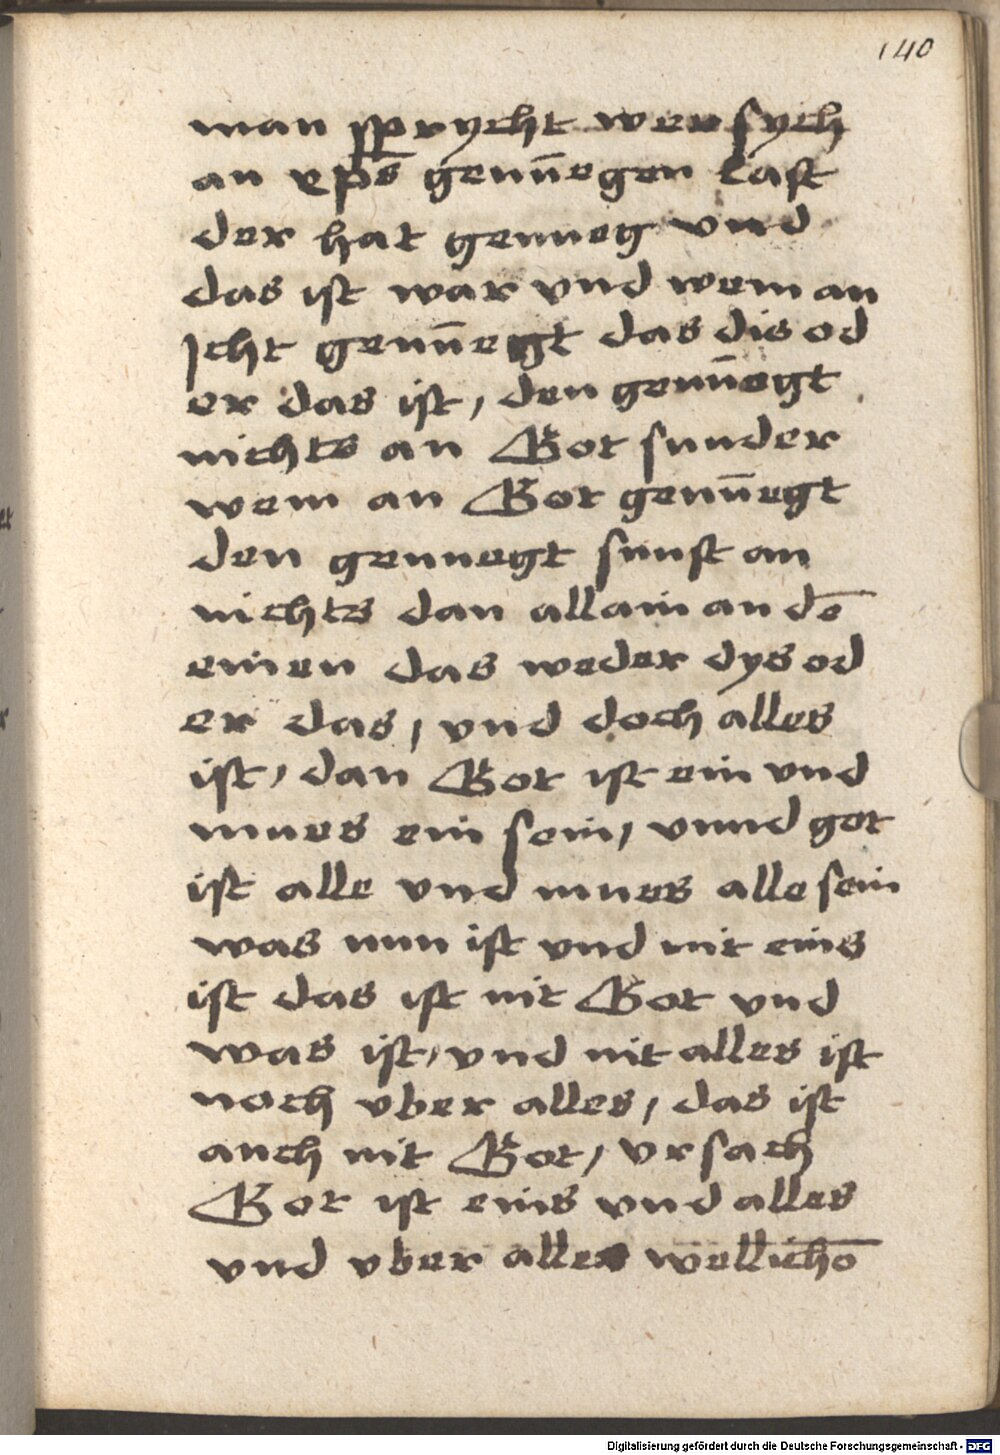 140
man sprycht wer sych
an xp̄s genūegen last
der hat genueg vnd
das ist war vnd wem an
Icht genūegt das dis od
er das ist, den genūegt
nichts an Got sunder
wem an Got genūegt
den genuegt sunst an
nichts dan allain an dē
einen das weder dys od
er das, vnd doch alles
ist, dan Got ist ein vnd
mues ein sein, vnnd got
ist alle vnd mues alle sein
was nun ist vnd nit eins
ist das ist nit Got vnd
was ist, vnd nit alles ist
noch vber alles, das ist
auch nit Got, vrsach
Got ist eins vnd alles
vnd vber alles wellichē
Digitalisierung gefördert durch die Deutsche Forschungsgemeinschaft - DFG